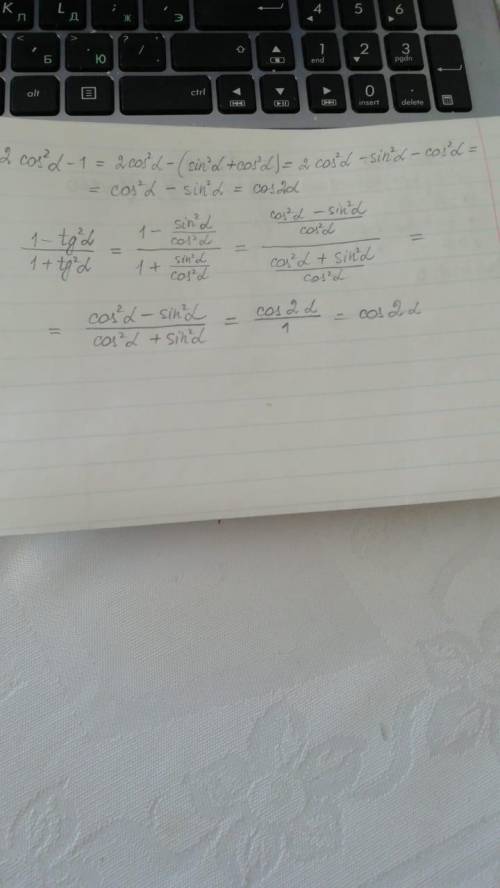 К Л L Д ; Ж ' Э 4 5 6
< , Б > . Ю ? / . 1 end 2 3 pgdn
alt ctrl 0 insert . delete
2 cos²α - 1 = 2cos²α - (sin²α + cos²α) = 2 cos²α - sin²α - cos²α =
= cos²α - sin²α = cos2α
(1 - tg²α)/(1 + tg²α) = (1 - sin²α/cos²α)/(1 + sin²α/cos²α) = ((cos²α - sin²α)/cos²α)/((cos²α + sin²α)/cos²α) =
= (cos²α - sin²α)/(cos²α + sin²α) = cos2α/1 = cos2α